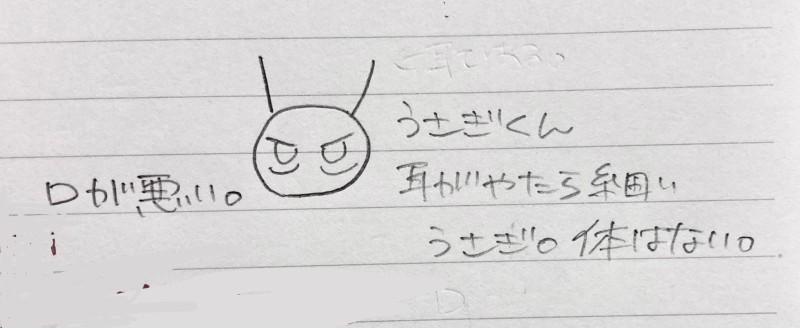 うさぎくん
耳がやたら細い
うさぎ。体はない。
口が悪い。